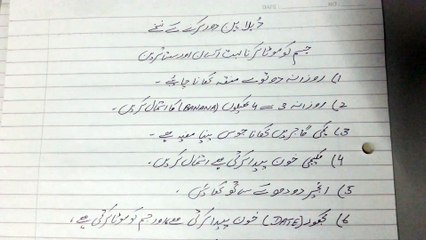 دُبلا پن دور کرنے کے نسخے
جسم کو موٹا کرنا بہت آسان اور سستا ترین
1) روزانہ دو تولے میتھہ کھانا چاہئے۔
2) روزانہ 3 سے 4 کیلوں (BANANA) کا استعمال کریں۔
3) پکی گاجریں کھانا جوس پینا مفید ہے۔
4) کلیجی خون پیدا کرتی ہے استعمال کریں۔
5) انجیر دودھ کے ساتھ کھائیں
6) کھجور (DATE) خون پیدا کرتی ہے اور جسم کو موٹا کرتی ہے،